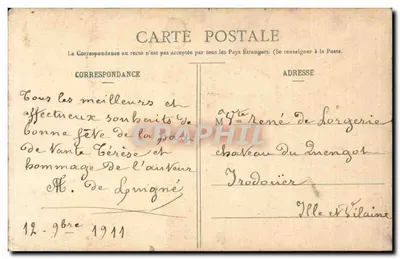 CARTE POSTALE
La Correspondance au recto n'est pas acceptée par tous les Pays Étrangers. (Se renseigner à la Poste.
CORRESPONDANCE
ADRESSE
Tous les meilleurs et
affectueux souhaits de
bonne fête de la part
de tante Térèse et
hommage de l'auteur
de Lungné
12 - 9bre 1911
M Vte rené de Lorgerie
chateau du Quengot
Irodouër
Ille et Vilaine
CPAPHIL.com